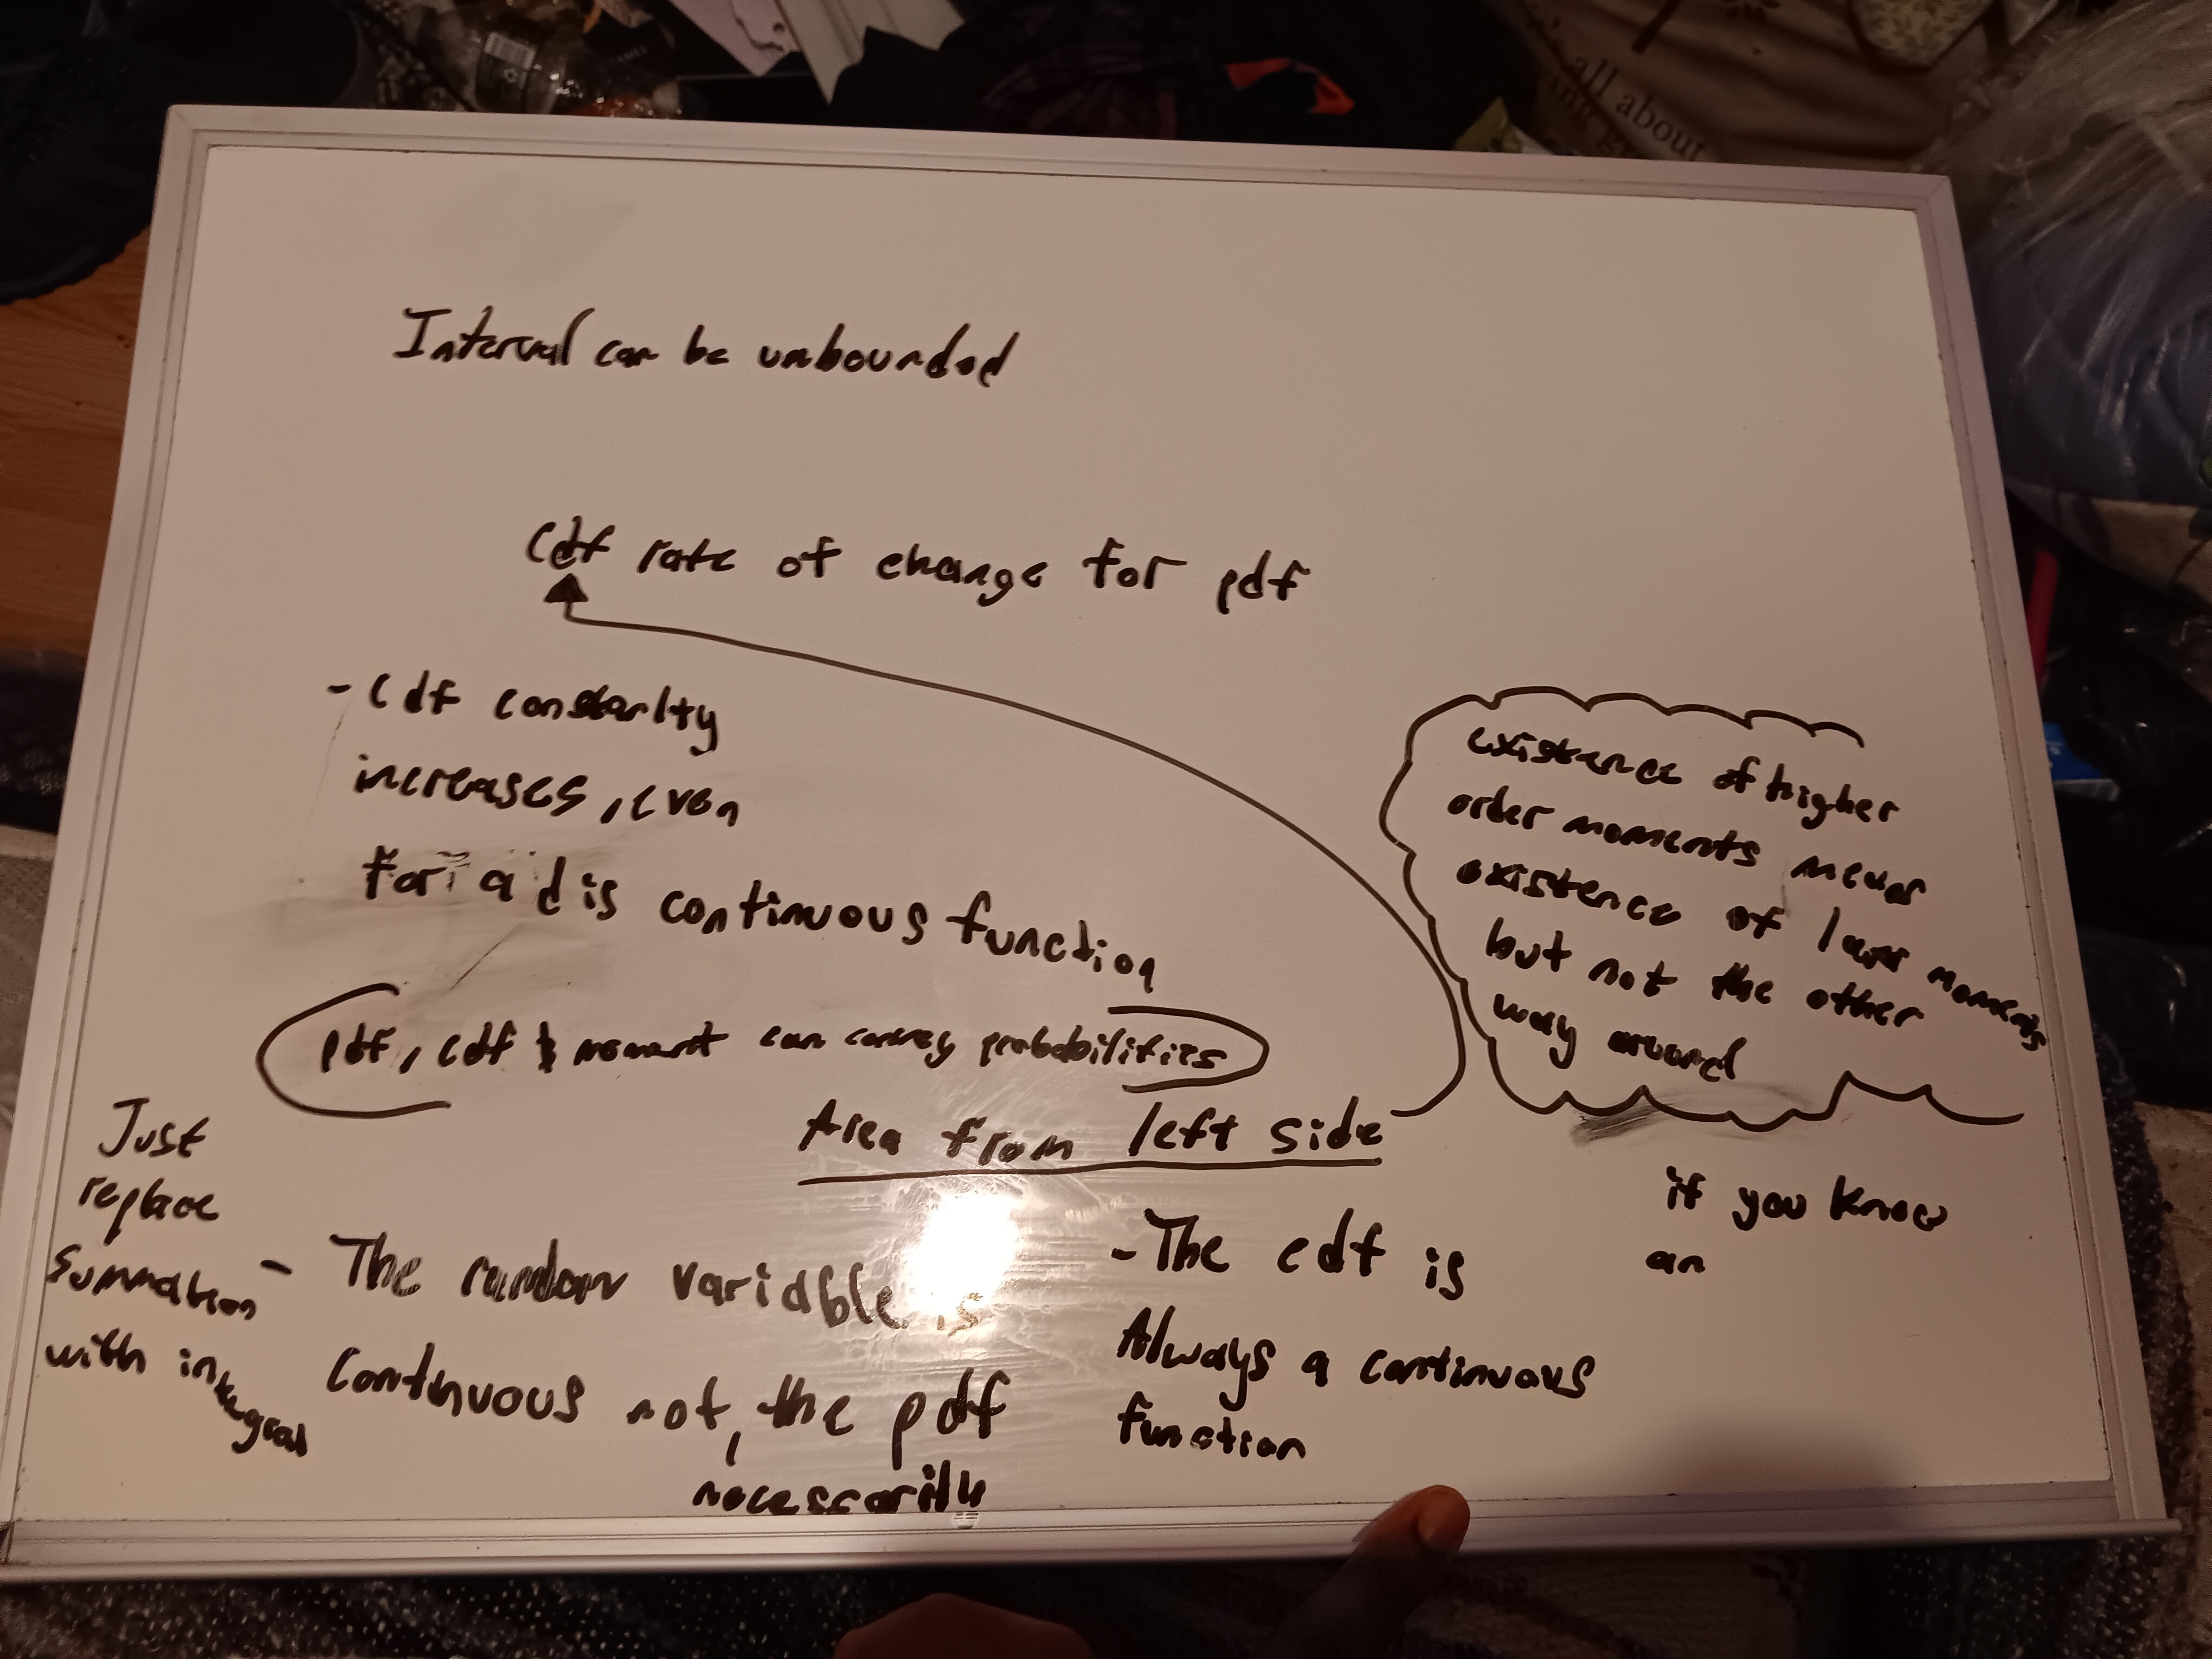 all about
ing
Interval can be unbounded
Cdf rate of change for pdf
- Cdf constanlty
increases, even
for a dis continuous function
existence of higher
order moments means
existence of lower moments
but not the other
way around
pdf, cdf & moment can convey probabilities
Area from left side
Just
replace
summation
with integral
- The random variable is
continuous not, the pdf
necessarily
- The cdf is
Always a continuous
function
if you know
an